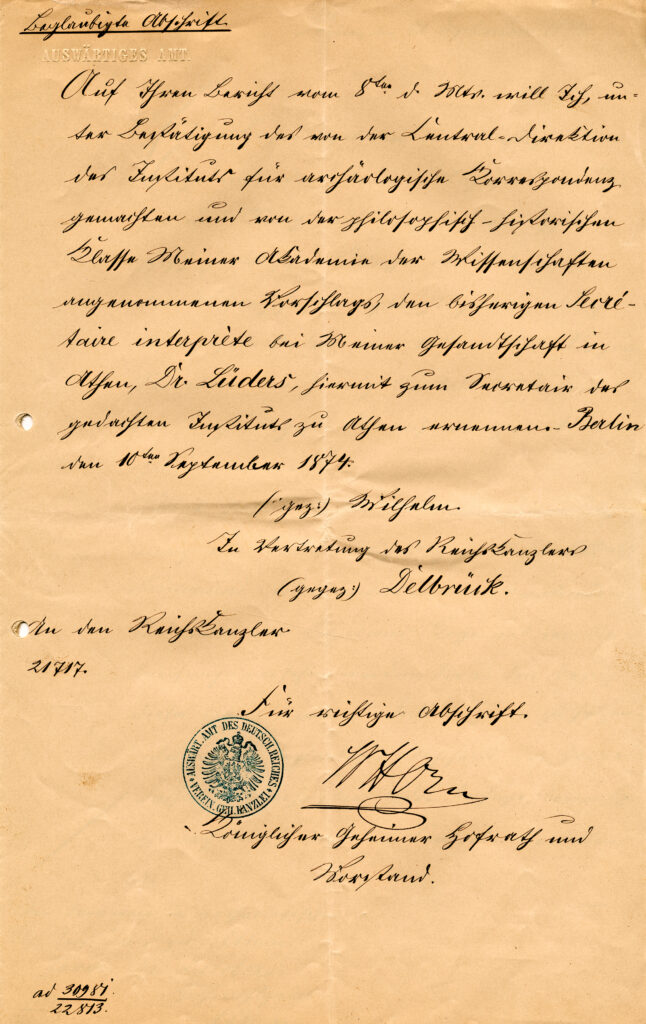 Beglaubigte Abschrift.
AUSWÄRTIGES AMT.
Auf Ihren Bericht vom 8ten d. Mts. will Ich, un-
ter Bestätigung des von der Central-Direktion
des Instituts für archäologische Korrespondenz
gemachten und von der philosophisch-historischen
Klasse Meiner Akademie der Wissenschaften
angenommenen Vorschlags, den bisherigen Secré-
taire interprète bei Meiner Gesandtschaft in
Athen, Dr. Lüders, hiermit zum Secretair des
gedachten Instituts zu Athen ernennen.- Berlin
den 10ten September 1874.
(gez:) Wilhelm.
In Vertretung des Reichskanzlers
(gegez:) Delbrück.
An den Reichskanzler
21717.
Für richtige Abschrift.
AUSWÄRT. AMT DES DEUTSCH. REICHES
* VEREIN. GEH. KANZLEI *
Königlicher Geheimer Hofrath und
Vorstand.
ad 30981.
22813.